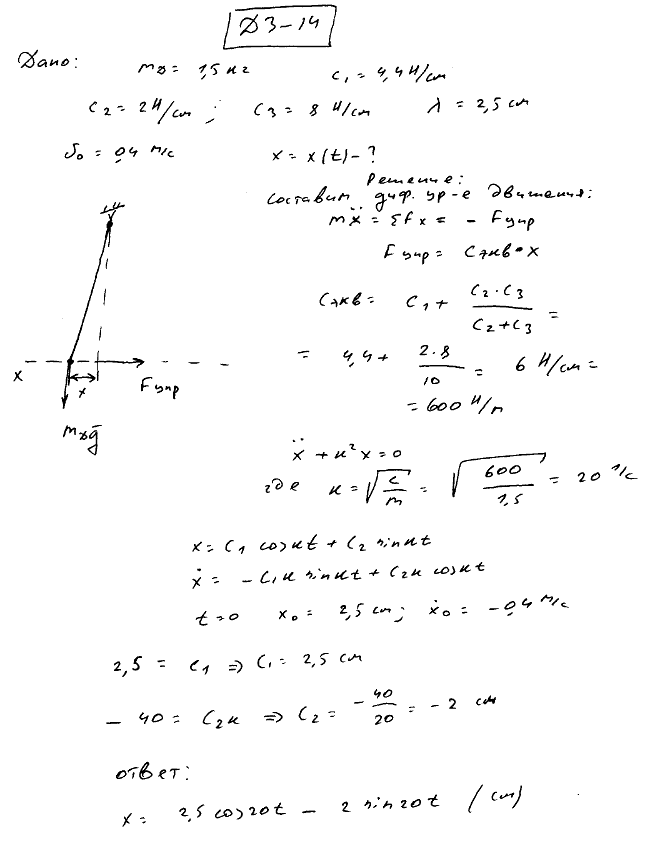 Д3-14
Дано: mD = 1,5 кг c₁ = 4,4 Н/см
c₂ = 2 Н/см; c₃ = 8 Н/см λ = 2,5 см
υ₀ = 0,4 м/с x = x(t) - ?
Решение:
Составим диф. ур-е движения:
mẍ = Σfx = - Fупр
Fупр = Cэкв • x
Cэкв = c₁ + (c₂·c₃)/(c₂+c₃) =
= 4,4 + (2·8)/10 = 6 Н/см =
= 600 Н/м
x x Fупр
mDg̅
ẍ + к²x = 0
где к = √(c/m) = √(600/1,5) = 20 1/с
x = C₁ cos кt + C₂ sin кt
ẋ = - C₁к sin кt + C₂к cos кt
t=0 x₀ = 2,5 см; ẋ₀ = -0,4 м/с
2,5 = C₁ ⇒ C₁ = 2,5 см
- 40 = C₂к ⇒ C₂ = -40/20 = - 2 см
ответ:
x = 2,5 cos 20t - 2 sin 20t (см)